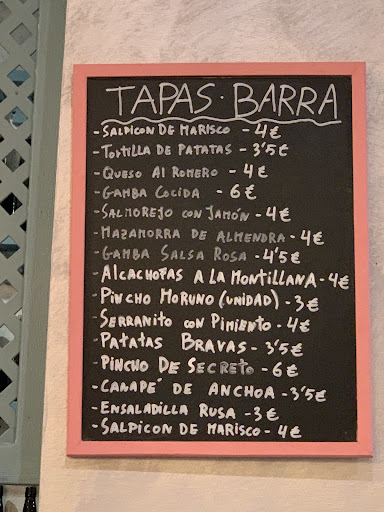 TAPAS · BARRA
- SALPICON DE MARISCO - 4€
- TORTILLA DE PATATAS - 3'5€
- QUESO AL ROMERO - 4€
- GAMBA COCIDA - 6€
- SALMOREJO CON JAMÓN - 4€
- MAZAMORRA DE ALMENDRA - 4€
- GAMBA SALSA ROSA - 4'5€
- ALCACHOFAS A LA MONTILLANA - 4€
- PINCHO MORUNO (UNIDAD) - 3€
- SERRANITO CON PIMIENTO - 4€
- PATATAS BRAVAS - 3'5€
- PINCHO DE SECRETO - 6€
- CANAPÉ DE ANCHOA - 3'5€
- ENSALADILLA RUSA - 3€
- SALPICON DE MARISCO - 4€